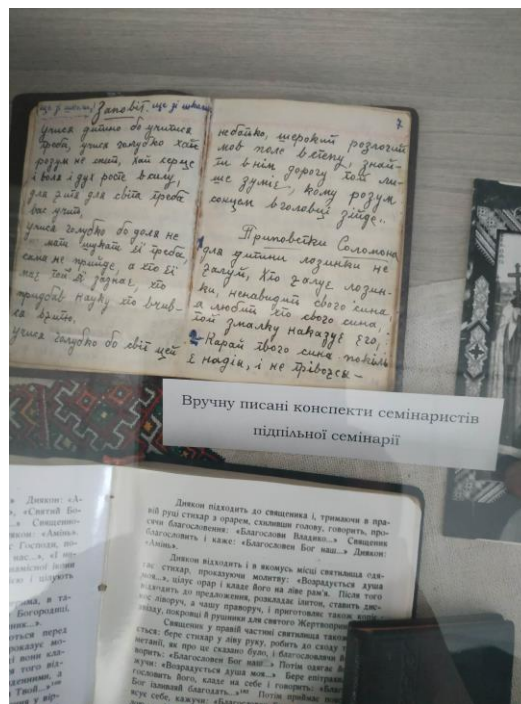 Заповіт. ще зі школи
учися дитино бо учитися
треба, учися голубко хай
розум не спит, хай серце
і воля і дух росте в силу,
для житя для світа треба
вас учит,
учися голубко бо доля не
мать шукати її треба,
сама не прийде, а хто її
має той її зазнає, хто
придбав науку хто вчив-
ся в житю.
учися голубко бо світ цей
7
небатько, широкий розлогий
мов поле в степу, знай-
ти в нім дорогу той ли-
ше зуміє, кому розум
сонцем в головці зійде..
Приповетки Соломона
1 для дитини лозинки не
жалуй, Хто жалує лозин-
ки, ненавидит свого сина
а любит хто свого сина,
той змалку наказує Єго,
2 Карай твого сина покіль
Є надія, і не трівожся—
Вручну писані конспекти семінаристів
підпільної семінарії
Диякон: «А-
«Святий Бо-
Священно-
Диякон:
«Амінь».
Господи, по-
нас...»,
намісної ікони
і цілують
в та-
Богородиці,
ються перед
проказує мо-
вони кла-
того від-
Твой...»
Диякон підходить до священика і, тримаючи в пра-
вій руці стихар з орарем, схиливши голову, говорить, про-
сячи благословення: «Благослови Владико...» Священик
благословить і каже: «Благословен Бог наш...» Диякон:
«Амінь».
Диякон відходить і в якомусь місці святилища одя-
гає стихар, проказуючи молитву: «Возрадується душа
моя...», цілує орар і кладе його на ліве рам'я. Після того
відходить до предложення, розкладає ілитон, ставить дис-
кос ліворуч, а чашу праворуч, і приготовляє також копіє,
звізду, покровці й рушники для святого Жертвоприн
Священик у правій частині святилища також
ється: бере стихар у ліву руку, робить до сходу т
метанії, як про це сказано було, і благословляючи й
ворить: «Благословен Бог наш...» Потім одягає й
кажучи: «Возрадується душа моя...» Бере епітрах
гословить його, кладе на себе і говорить: «Благ
Бог ізливаяй благодать...» Потім приймає пояс
ясує себе, кажучи: «Благосл